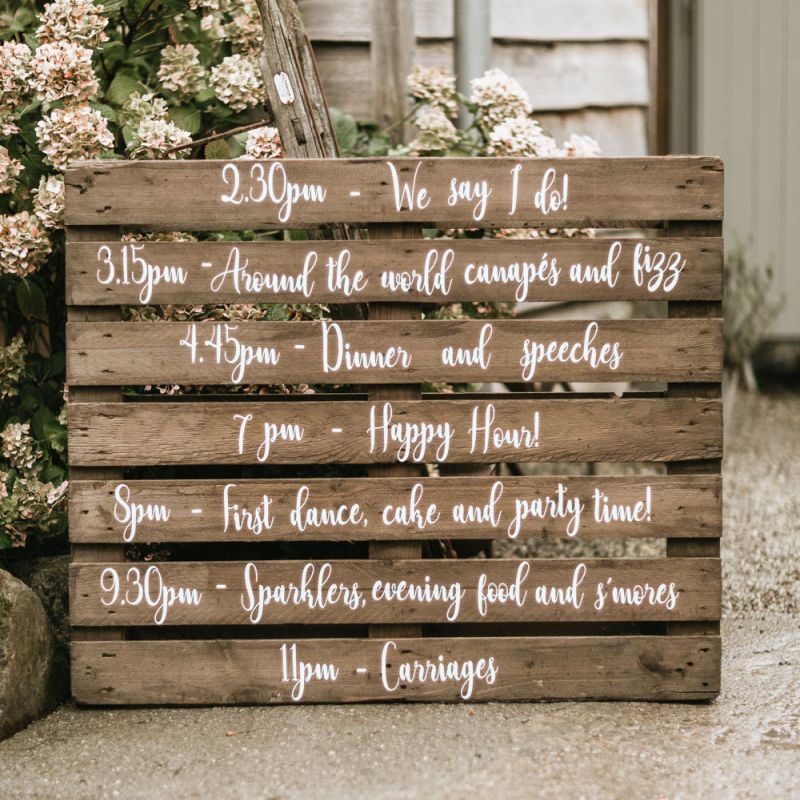 2.30pm - We say I do!
3.15pm - Around the world canapés and fizz
4.45pm - Dinner and speeches
7pm - Happy Hour!
8pm - First dance, cake and party time!
9.30pm - Sparklers, evening food and s'mores
11pm - Carriages